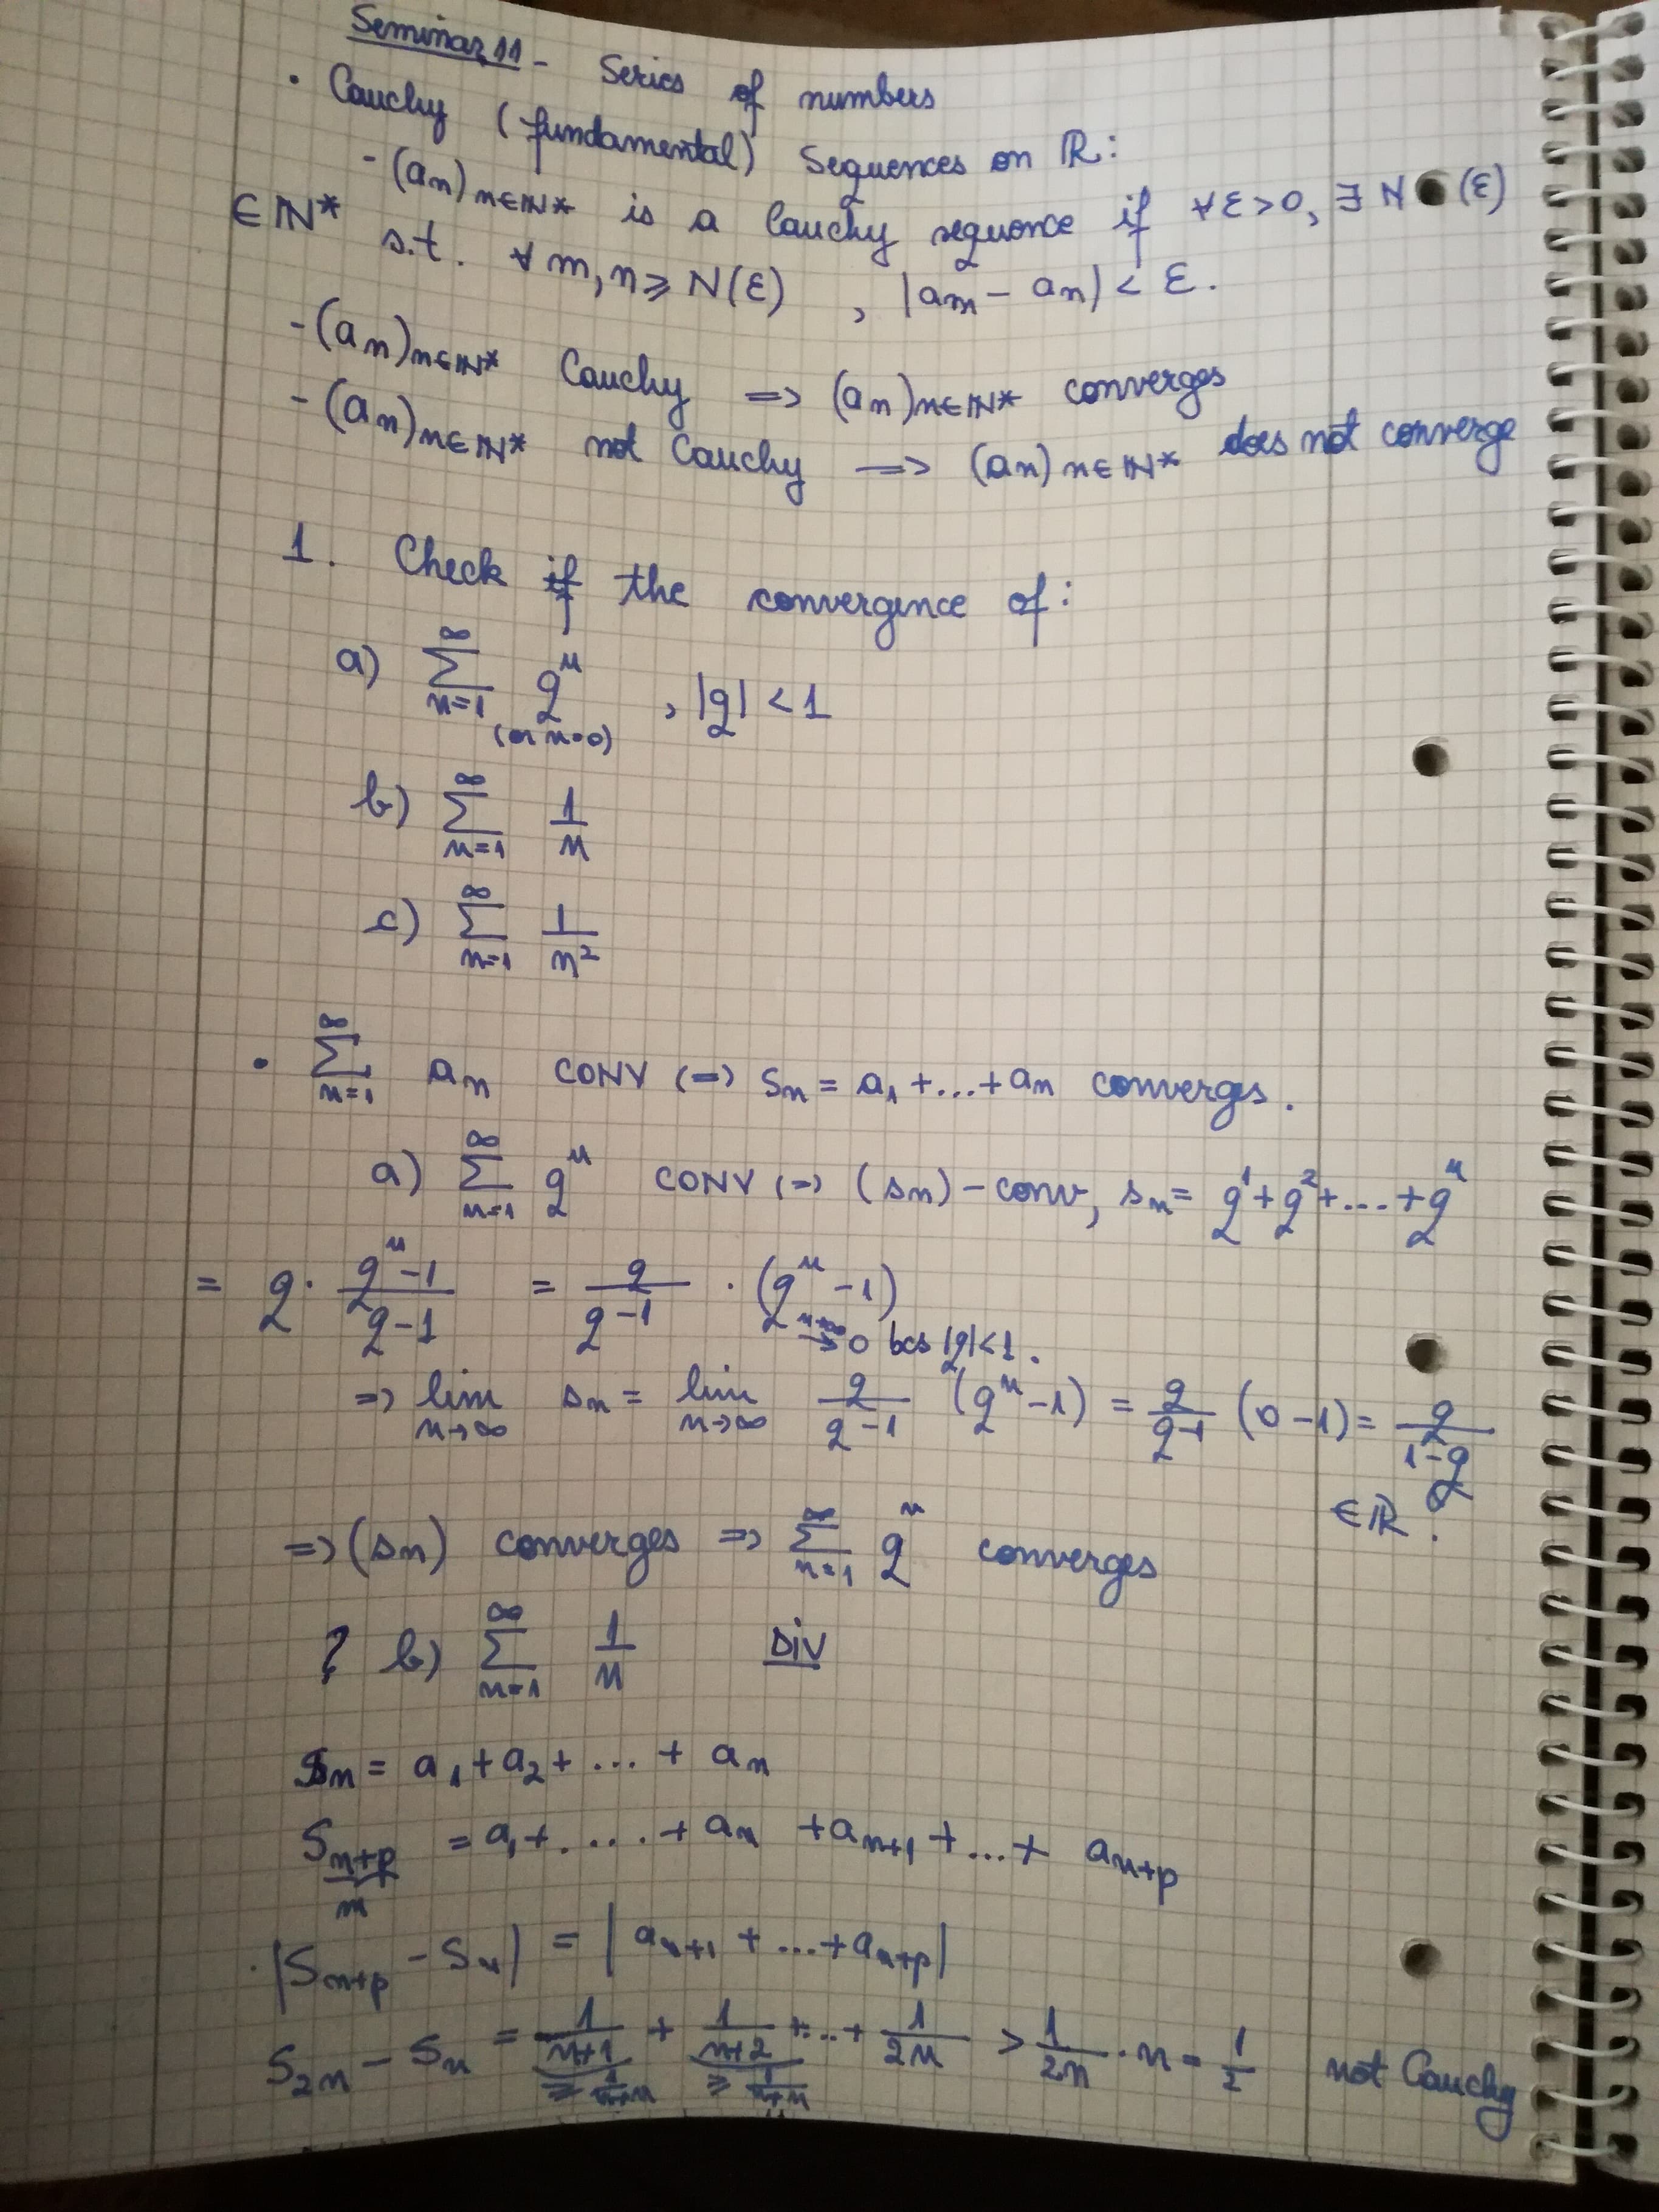 Seminar 11 - Series of numbers
• Cauchy (fundamental) Sequences on ℝ:
- (aₙ)ₙ∈ℕ* is a Cauchy sequence if ∀ε>0, ∃ N (ε)
∈ ℕ* s.t. ∀ m, n ⩾ N(ε) , |aₘ - aₙ| < ε.
- (aₙ)ₙ∈ℕ* Cauchy => (aₙ)ₙ∈ℕ* converges
- (aₙ)ₙ∈ℕ* not Cauchy => (aₙ)ₙ∈ℕ* does not converge
1. Check if the convergence of:
a) ∑_{n=1}^{∞} qⁿ , |q| < 1
(or n=0)
b) ∑_{n=1}^{∞} 1/n
c) ∑_{n=1}^{∞} 1/n²
• ∑_{n=1}^{∞} aₙ CONV (=) Sₙ = a₁ + ... + aₙ converges.
a) ∑_{n=1}^{∞} qⁿ CONV (=) (sₙ) - conv, sₙ = q¹ + q² + ... + qⁿ
= q · (qⁿ-1)/(q-1) = q/(q-1) · (qⁿ - 1)
n→∞ → 0 bcs |q|<1.
=> lim_{n→∞} sₙ = lim_{n→∞} q/(q-1) (qⁿ-1) = q/(q-1) (0-1) = q/(1-q)
∈ ℝ.
=> (sₙ) converges => ∑_{n=1}^{∞} qⁿ converges
? b) ∑_{n=1}^{∞} 1/n DIV
sₙ = a₁ + a₂ + ... + aₙ
S_{n+p} = a₁ + .... + aₙ + a_{n+1} + ... + a_{n+p}
m
· |S_{n+p} - Sₙ| = |a_{n+1} + ... + a_{n+p}|
S_{2n} - Sₙ = 1/(n+1) + 1/(n+2) + ... + 1/(2n) > 1/(2n) · n = 1/2 not Cauchy
⩾ 1/(n+n) ⩾ 1/(n+n)